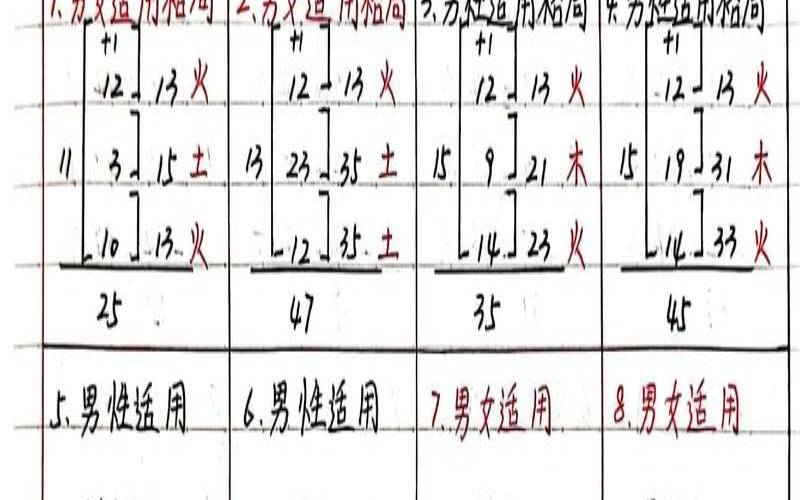 1.男女适用格局 2.男女适用格局 3.男性适用格局 4.男性适用格局
+1 +1 +1 +1
12 13 火 12 13 火 12 13 火 12 13 火
11 3 15 土 13 23 35 土 15 9 21 木 15 19 31 木
10 13 火 12 35 土 14 23 火 14 33 火
25 47 35 45
5.男性适用 6.男性适用 7.男女适用 8.男女适用